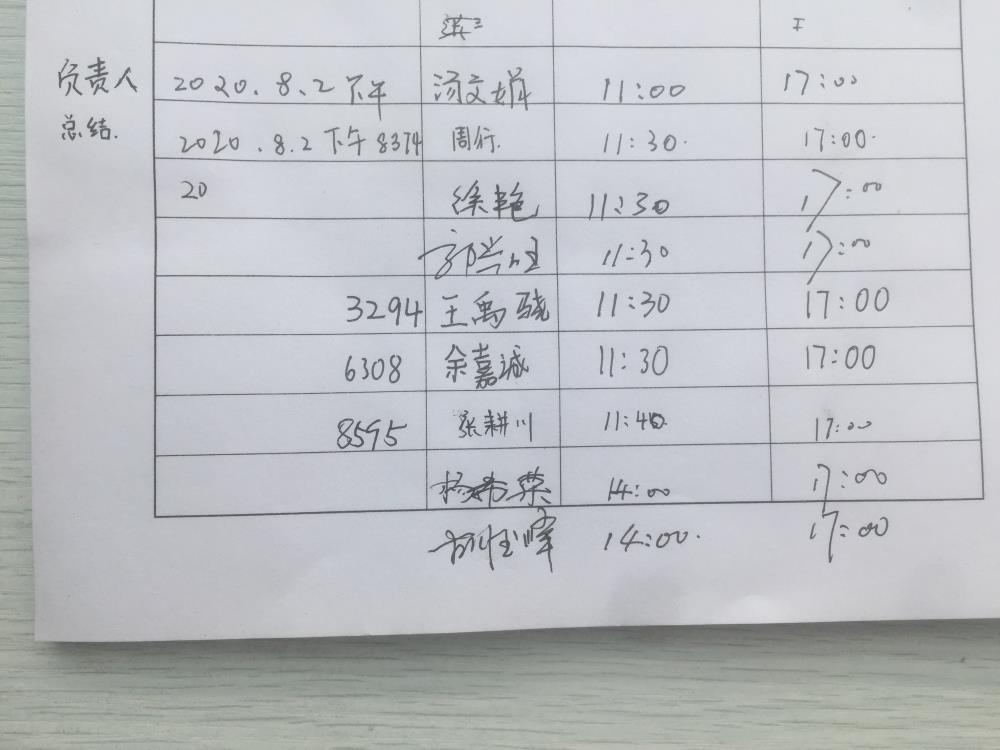 负责人 2020.8.2下午 汤文娟 11:00 17:00
总结. 2020.8.2下午8374 周行. 11:30. 17:00.
20 徐艳 11:30 17:00
郭 11:30 17:00
3294 王禹骁 11:30 17:00
6308 余嘉诚 11:30 17:00
8595 张耕川 11:40. 17:00
杨 荣 14:00 17:00
峰 14:00. 17:00